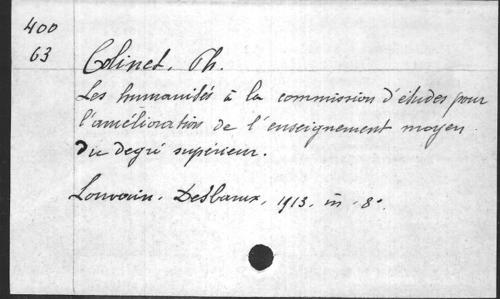 400
63
Colinet, Ph.
Les humanités à la commission d'études pour
l'amélioration de l'enseignement moyen
Du degré supérieur.
Louvain. Desbaux, 1913. in - 8°.